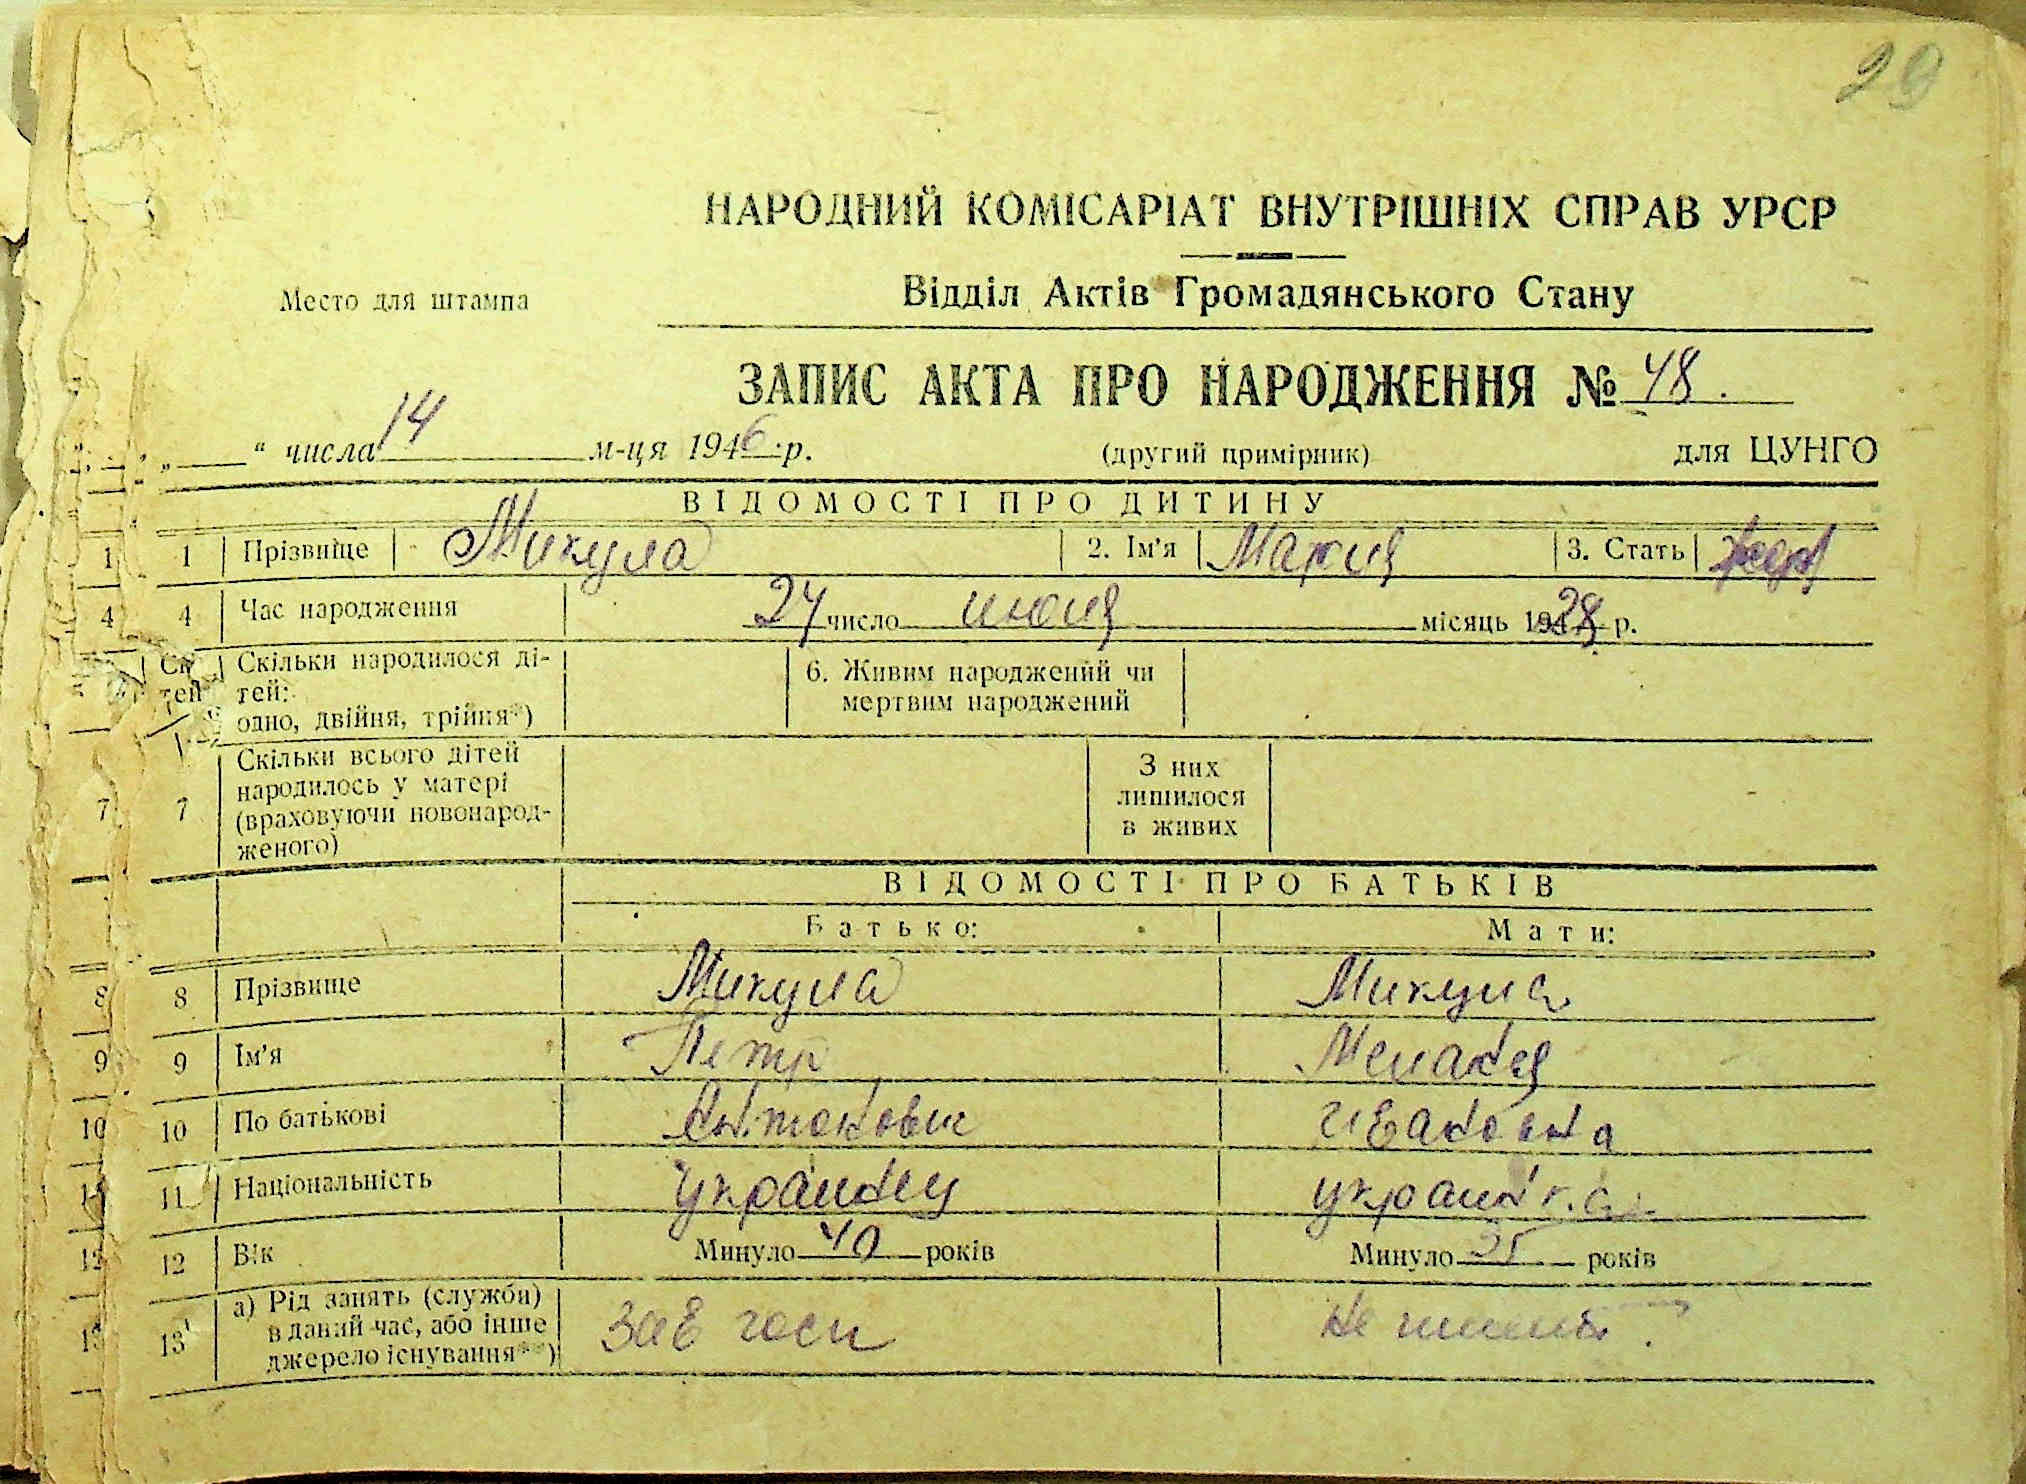 29
НАРОДНИЙ КОМІСАРІАТ ВНУТРІШНІХ СПРАВ УРСР
Место для штампа
Відділ Актів Громадянського Стану
ЗАПИС АКТА ПРО НАРОДЖЕННЯ № 48.
„ “ числа 14 м-ця 1946 р. (другий примірник) для ЦУНГО
ВІДОМОСТІ ПРО ДИТИНУ
1 1 Прізвище Микула 2. Ім'я Мария 3. Стать
4 4 Час народження 24 число июля місяць 19 р.
Скільки народилося ді-
тей:
одно, двійня, трійня*)
6. Живим народжений чи
мертвим народжений
7 7 Скільки всього дітей
народилось у матері
(враховуючи новонарод-
женого)
З них
лишилося
в живих
ВІДОМОСТІ ПРО БАТЬКІВ
Батько: Мати:
8 8 Прізвище Микула Микула
9 9 Ім'я Петр
10 10 По батькові Антонович Ивановна
11 11 Національність украинец украинка
12 12 Вік Минуло 40 років Минуло 35 років
13 13 а) Рід занять (служби)
в даний час, або інше
джерело існування**)